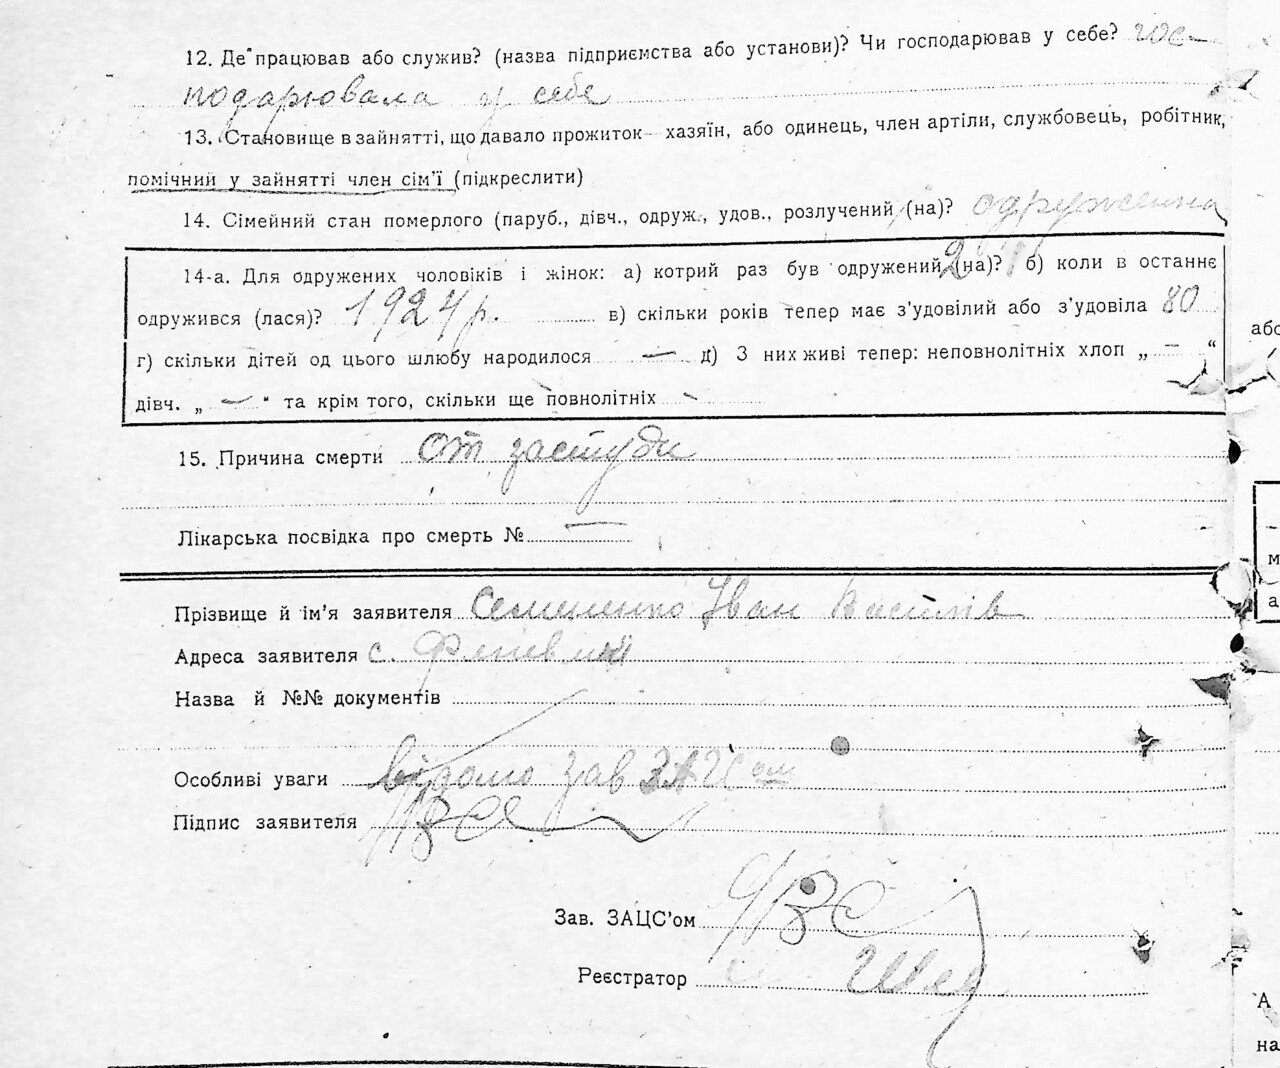 12. Де працював або служив? (назва підприємства або установи)? Чи господарював у себе? гос-
подарювала у себе
13. Становище в зайнятті, що давало прожиток — хазяїн, або одинець, член артіли, службовець, робітник,
помічний у зайнятті член сім’ї (підкреслити)
14. Сімейний стан померлого (паруб., дівч., одруж., удов., розлучений (на)? одруженна
14-а. Для одружених чоловіків і жінок: а) котрий раз був одружений (на)? 2 б) коли в останнє
одружився (лася)? 1924 р. в) скільки років тепер має з’удовілий або з’удовіла 80
г) скільки дітей од цього шлюбу народилося — д) З них живі тепер: неповнолітніх хлоп „ — “
дівч. „ — “ та крім того, скільки ще повнолітніх -
15. Причина смерти от застуди
Лікарська посвідка про смерть № —
Прізвище й ім’я заявителя Семененко Іван Васильів
Адреса заявителя с.
Назва й №№ документів
Особливі уваги відомо зав ЗАЦСом
Підпис заявителя
Зав. ЗАЦС’ом
Реєстратор
або
м
а
А
на